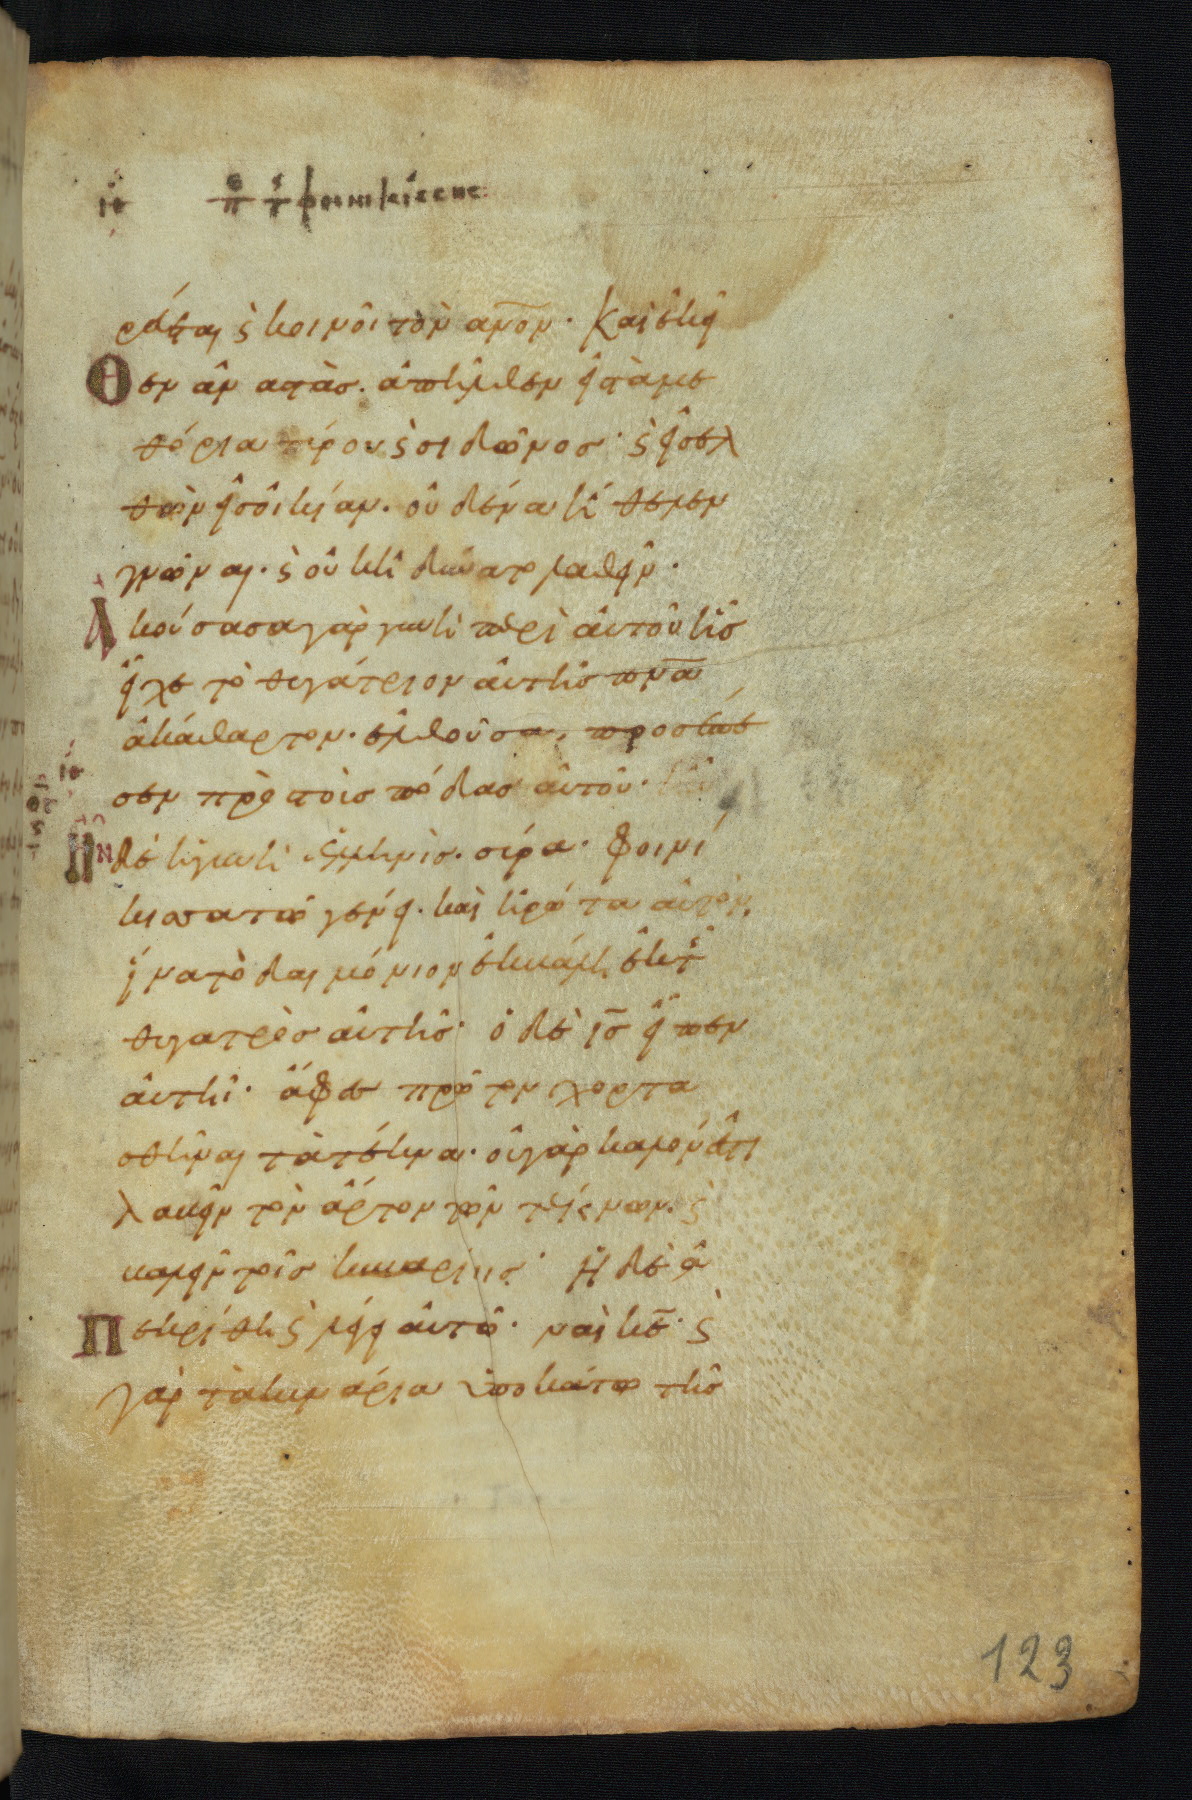 ιθ περὶ τῆς φοινικίσσης
ρεύεται ϗ κοινοῖ τὸν ανον· Καὶ ἐκεῖ
Θεν ἀναστὰσ. ἀπῆλθεν εἰς τὰ με
θόρια τύρου ϗ σιδῶνοσ· ϗ εἰσελ
θὼν εἰσ οἰκίαν. οὐδένα ἤθελεν
γνῶναι· ϗ οὐκ ἠδυνατο λαθεῖν·
Ἀκούσασα γὰρ γυνὴ περὶ αὐτοῦ ἧσ
εἶχε τὸ θυγάτριον αὐτῆσ πνα
ἀκάθαρτον. ἐλθοῦσα, προσέπε
σεν πρὸσ τοὺσ πόδασ αὐτοῦ·
Ἦν δὲ ἡ γυνὴ ἑλληνὶσ. σύρα· φοινί
κισσα τῷ γένει. καὶ ἠρώτα αὐτὸν,
ἵνα τὸ δαιμόνιον ἐκβάλη ἐκ τῆσ
θυγατρὸσ αὐτῆσ· ὁ δὲ ισ εἶπεν
αὐτῆ· ἄφεσ πρῶτον χορτα
σθῆναι τὰ τέκνα· οὐ γὰρ καλόν ἐστι
λαβεῖν τὸν ἄρτον τῶν τέκνων. ϗ
βαλεῖν τοῖσ κυναρίοισ· ἡ δὲ ἀ
Πεκρίθη ϗ λέγει αὐτῶ· ναὶ κε· ϗ
γὰρ τὰ κυνάρια ὑποκάτω τῆσ
123